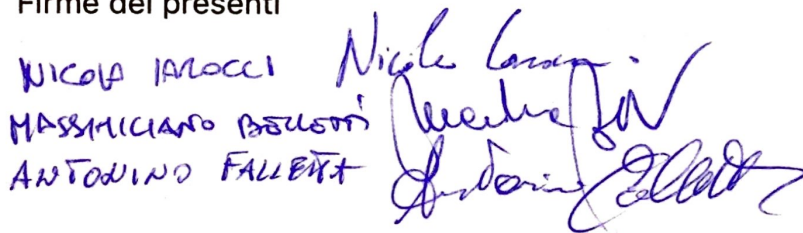 Firme dei presenti
NICOLA IAROCCI Nicola Iarocci
MASSIMILIANO BELLOTTI
ANTONINO FALLETTA Antonino Falletta